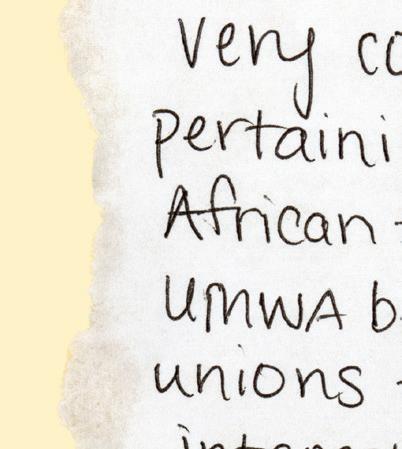 Very co
pertaini
African
UMWA b
unions